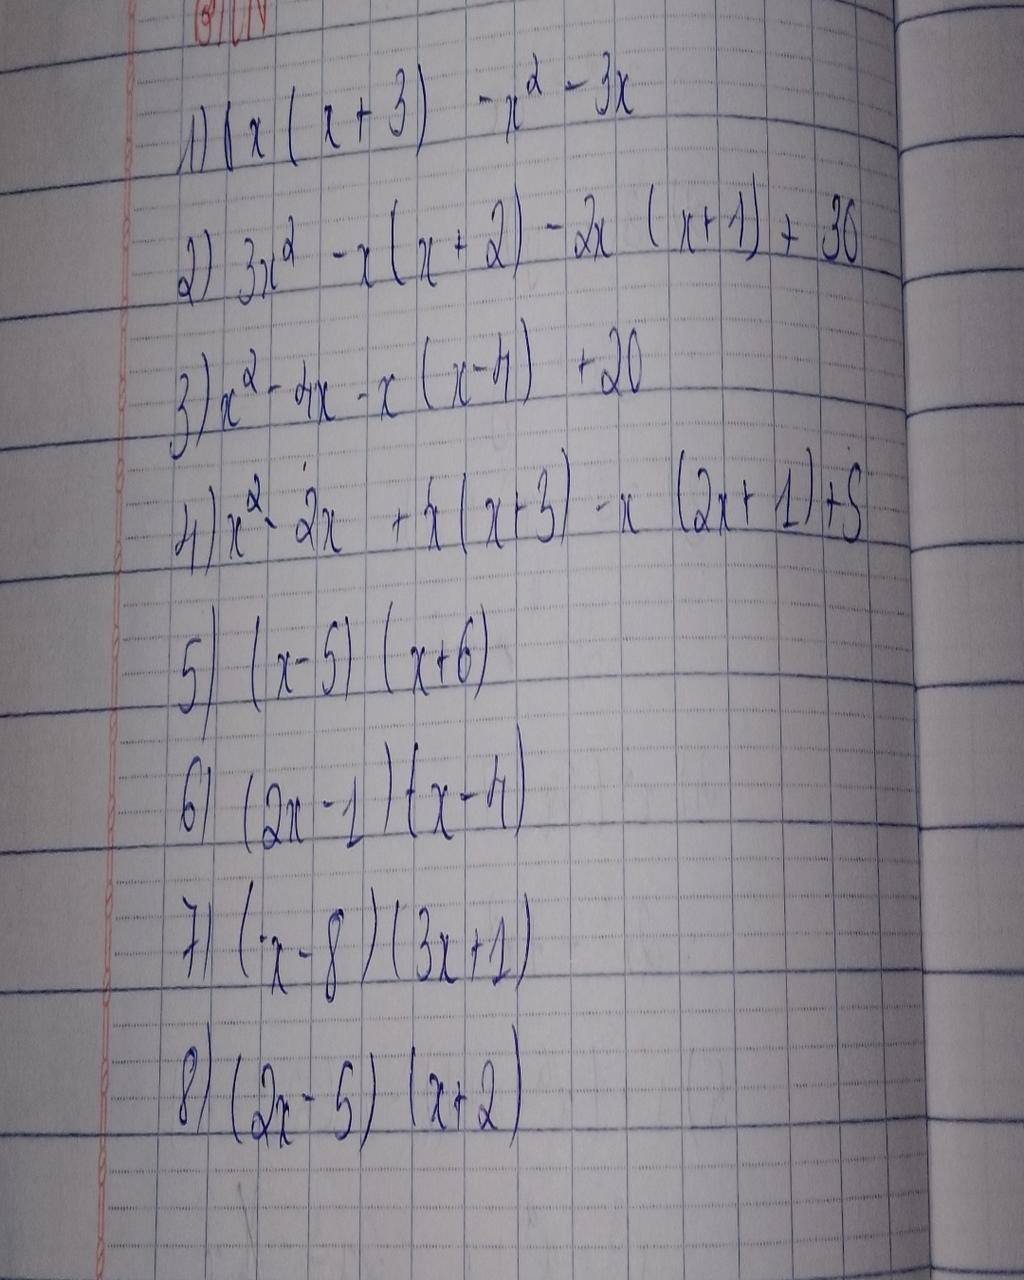 1) (x (x+3) - x² - 3x
2) 3x² - x(x+2) - 2x (x+1) + 30
3) x² - 4x - x (x-4) + 20
4) x² - 2x + x(x+3) - x (2x+1) + 5
5) (x-5) (x+6)
6) (2x-1)(x-4)
7) (x-8)(3x+1)
8) (2x-5) (x+2)